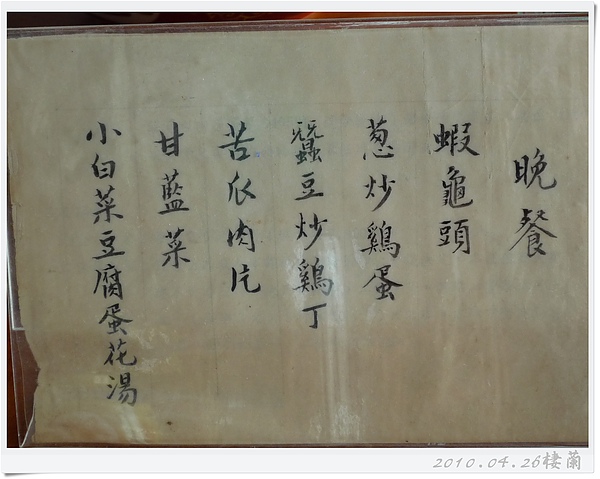 晚餐
蝦龜頭
葱炒鷄蛋
蠶豆炒鷄丁
苦瓜肉片
甘藍菜
小白菜豆腐蛋花湯
2010.04.26棲蘭